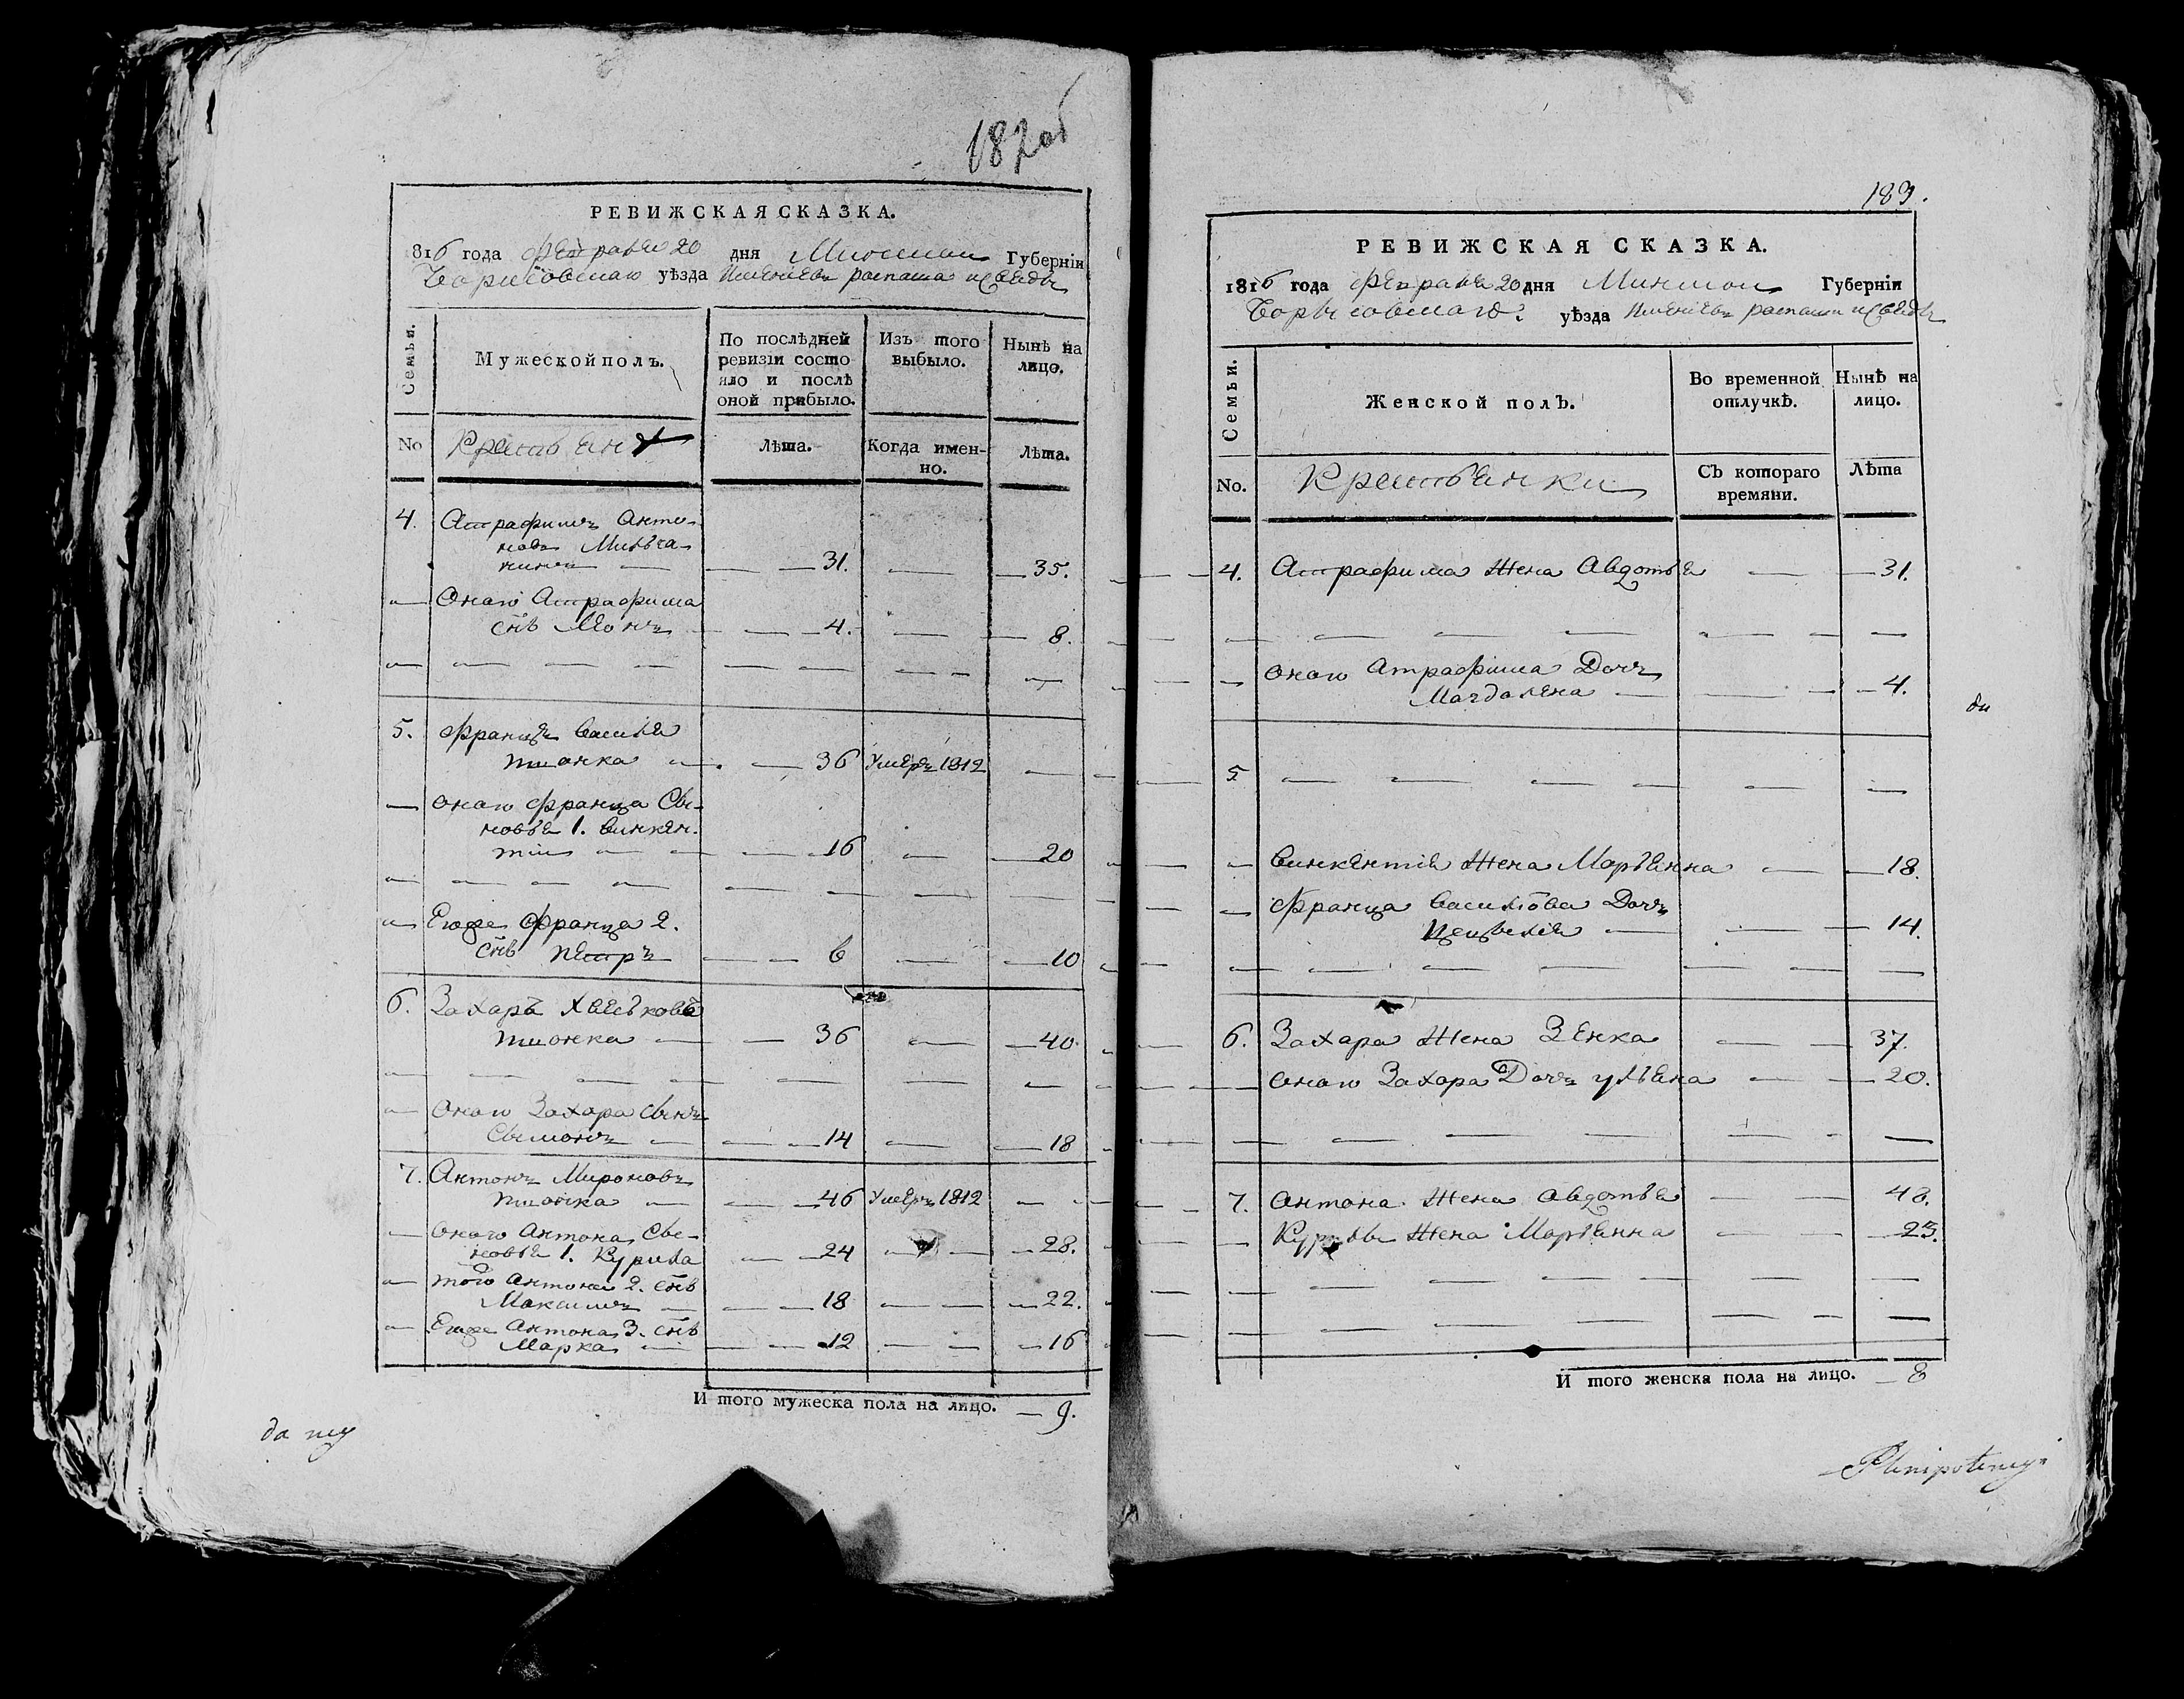 182 об
РЕВИЖСКАЯ СКАЗКА.
1816 года февраля 20 дня Минской Губерніи
Борисовскаго уѣзда
Семьи.
Мужеской полъ.
По послѣдней ревизіи состояло и послѣ оной прибыло.
Изъ того выбыло.
Нынѣ на лицо.
No
Крестьяня
Лѣта.
Когда именно.
Лѣта.
4. Астрафимъ Анто-
новъ
— — 31. — — 35.
— Оного Астрафима
снъ — — 4. — — 8.
5. Францъ Василев
— — 36 Умеръ 1812 —
— оного Франца Сы-
новья 1. Винкен-
тии — — 16 — — 20
— Егоже Франца 2.
снъ Петръ — — 6 — — 10
6. Захаръ
тионка — — 36 — — 40
— Оного Захара Сынъ
Сымонъ — — 14 — — 18
7. Антонъ Мироновъ
тионка — — 46 Умеръ 1812 —
— оного Антона Сы-
новья 1. Курила — 24 — — 28.
— того Антона 2. снъ
Максимъ — — 18 — — 22.
— Егоже Антона 3. снъ
Марка — — 12 — — 16
И того мужеска пола на лицо. — 9.
183.
РЕВИЖСКАЯ СКАЗКА.
1816 года февраля 20 дня Минской Губерніи
Борысовскаго уѣзда
Семьи.
Женской полъ.
Во временной отлучкѣ.
Нынѣ на лицо.
No.
Крестьянки
Съ котораго времяни.
Лѣта
4. Астрафима Жена Авдотья — — 31.
— оного Атрафима Дочъ
Магдалена — — 4.
5
— Винкентія Жена Марьянна — — 18.
— Франца Василіова Дочъ
Цецылія — — 14.
6. Захара Жена Зенка — — 37.
— оного Захара Дочъ Ульяна — — 20.
7. Антона Жена Авдотья — — 48.
— Курилы Жена Марьянна — — 25.
И того женска пола на лицо. — 8
Plenipotency